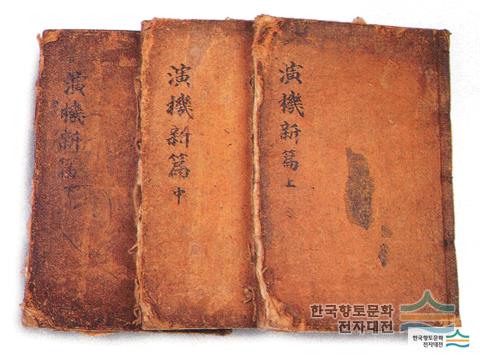 演機新篇上
演機新篇中
演機新篇下
한국향토문화
전자대전
한국향토문화
전자대전